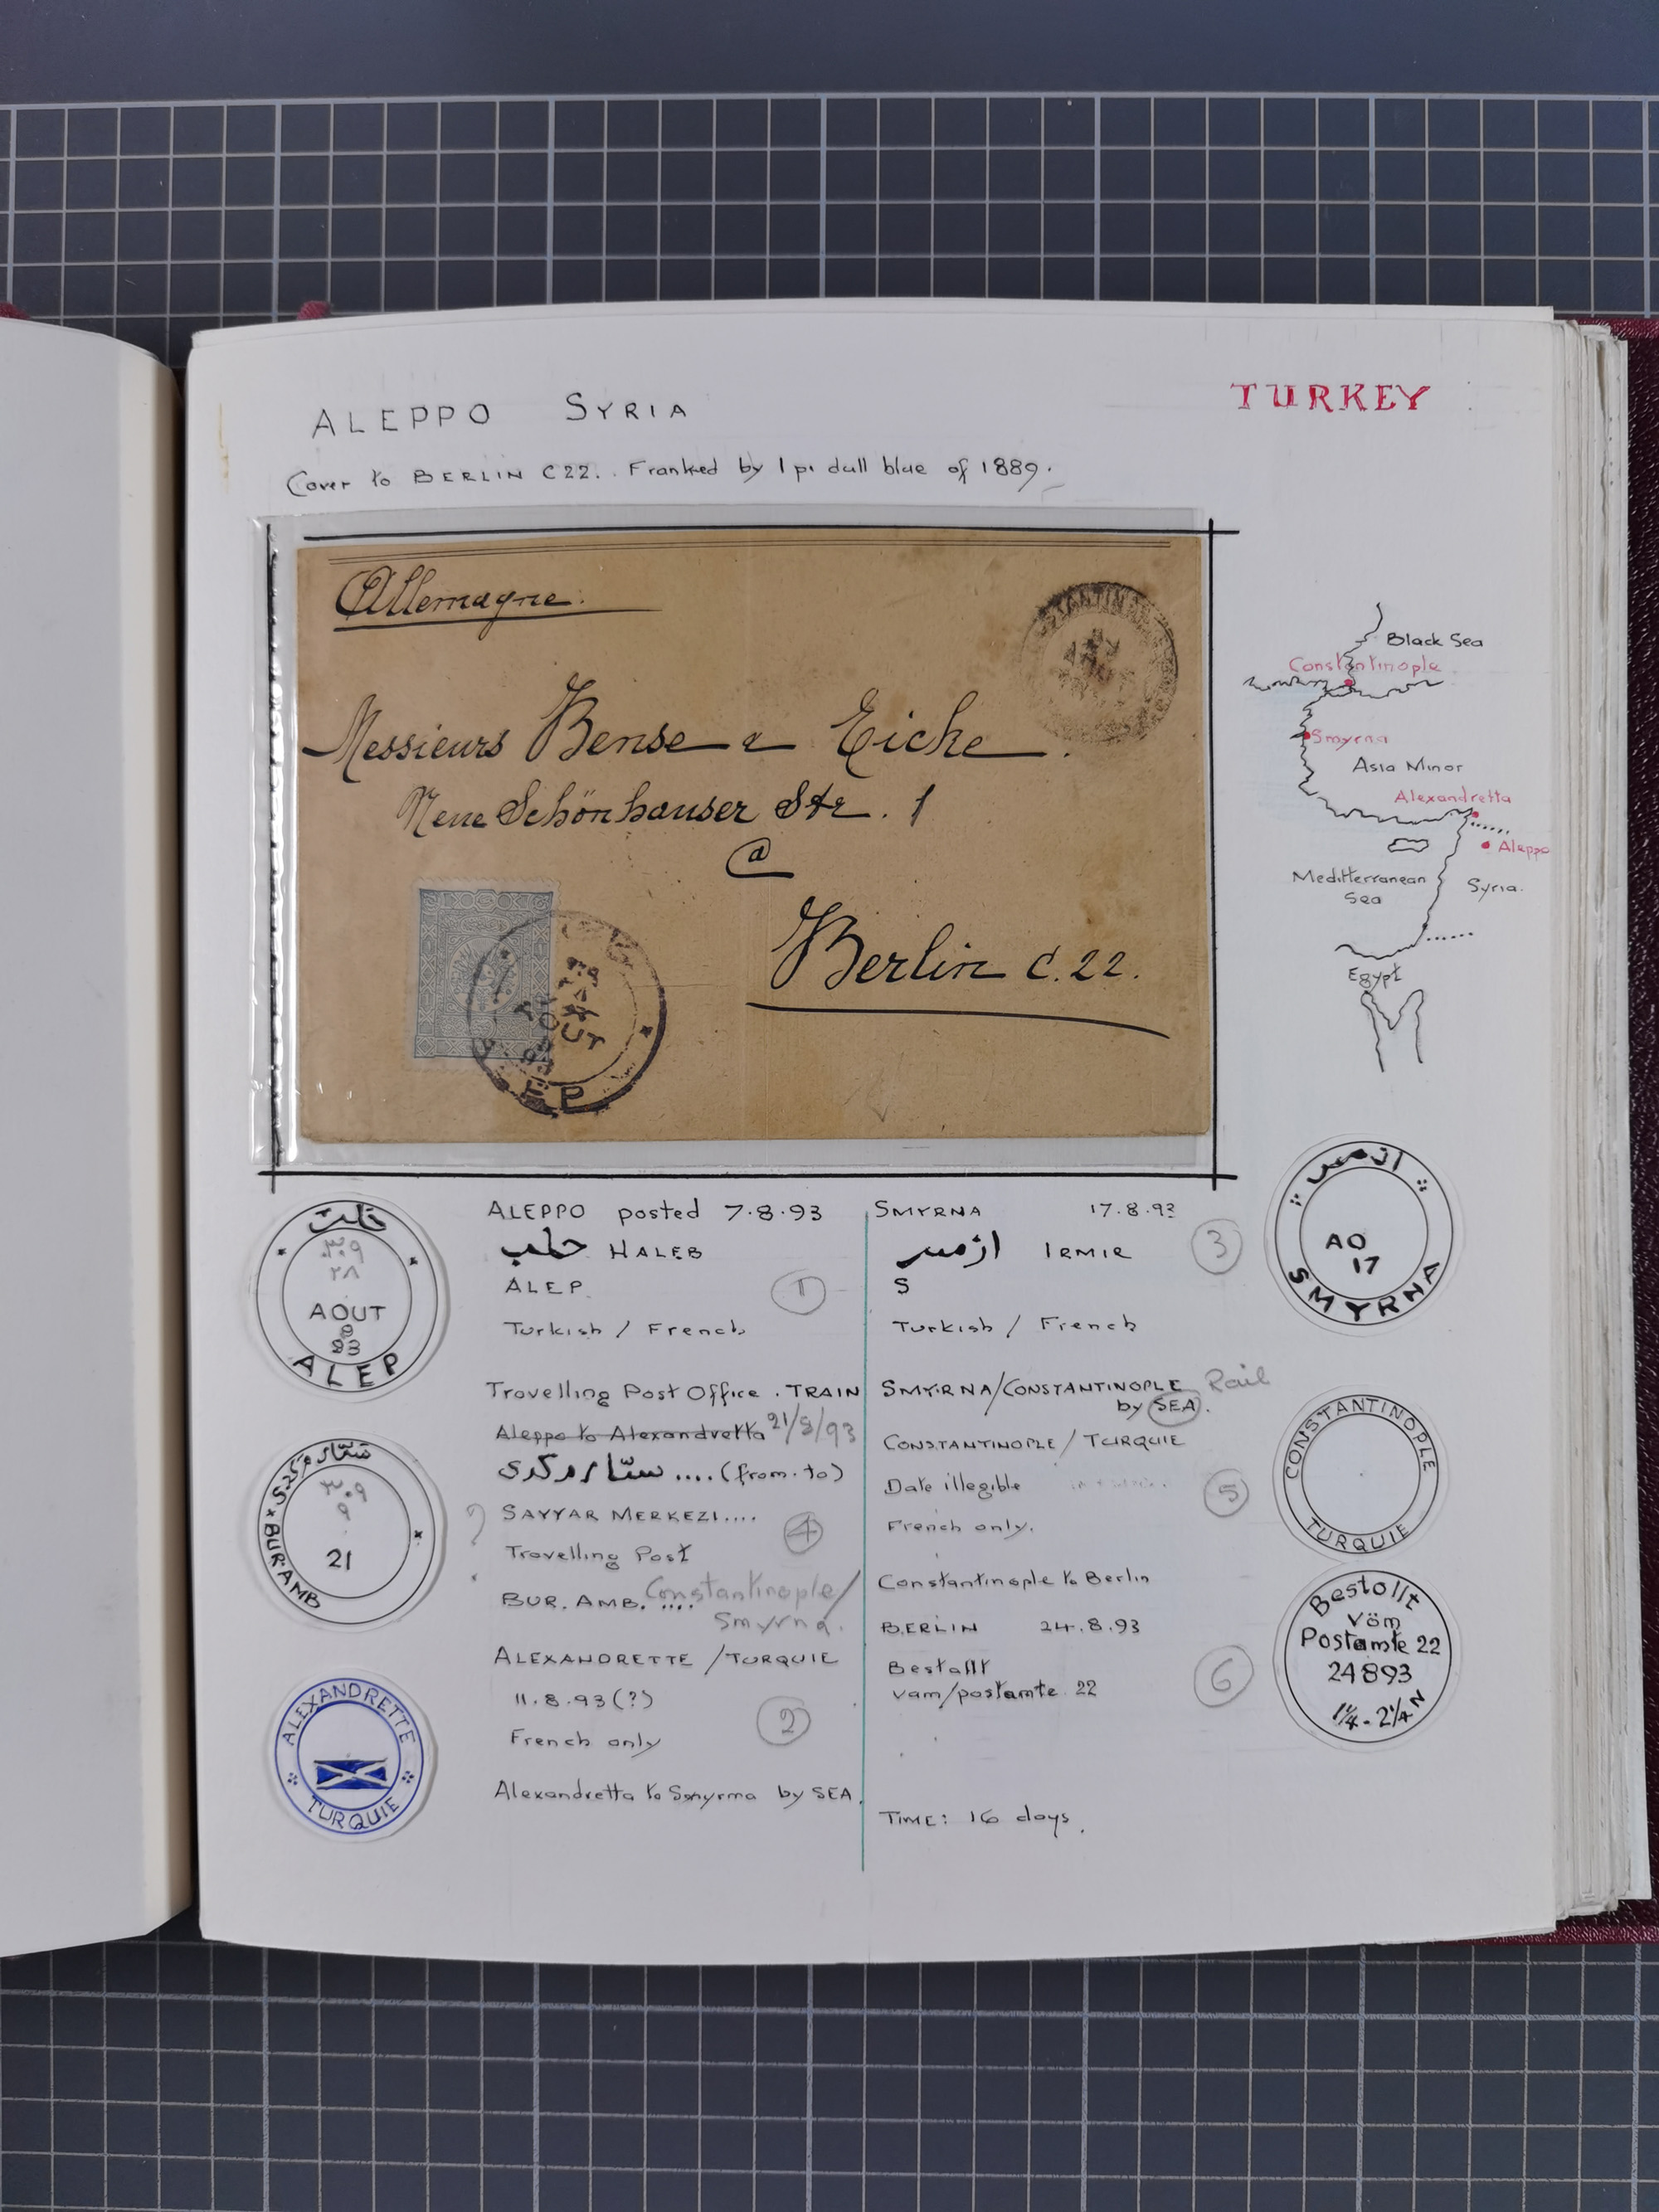 ALEPPO SYRIA
TURKEY
Cover to BERLIN C22.. Franked by 1 pi dull blue of 1889.
Allemagne.
Messieurs Bense & Eicke
Neue Schönhauser Str. 1
@
Berlin C.22.
EP
Black Sea
Constantinople
Smyrna
Asia Minor
Alexandretta
Aleppo
Mediterranean
Sea
Syria.
Egypt
حلب
٣٠٩
٢٨
AOUT
9
93
ALEP
ALEPPO posted 7.8.93
حلب HALEB
ALEP.
1
Turkish / French
Travelling Post Office . TRAIN
Aleppo to Alexandretta 21/8/93
سيّار مركزى .... (from. to)
? SAYYAR MERKEZI....
4
Travelling Post
BUR. AMB. .... Constantinople/
Smyrna.
ALEXANDRETTE /TURQUIE
11.8.93(?)
2
French only
Alexandretta to Smyrma by SEA.
سيّار مركزى
٣٠٩
٩
21
BUR.AMB
ALEXANDRETTE
TURQUIE
SMYRNA 17.8.93
ازمير IRMIR
3
S
Turkish / French
SMYRNA/CONSTANTINOPLE Rail
by SEA.
CONSTANTINOPLE / TURQUIE
Date illegible
5
French only.
Constantinople to Berlin
BERLIN 24.8.93
Bestallt
vam/postamte 22
6
TIME: 16 days.
ازمير
AO
17
SMYRNA
CONSTANTINOPLE
TURQUIE
Bestollt
Vöm
Postamte 22
24893
1¼-2¼N